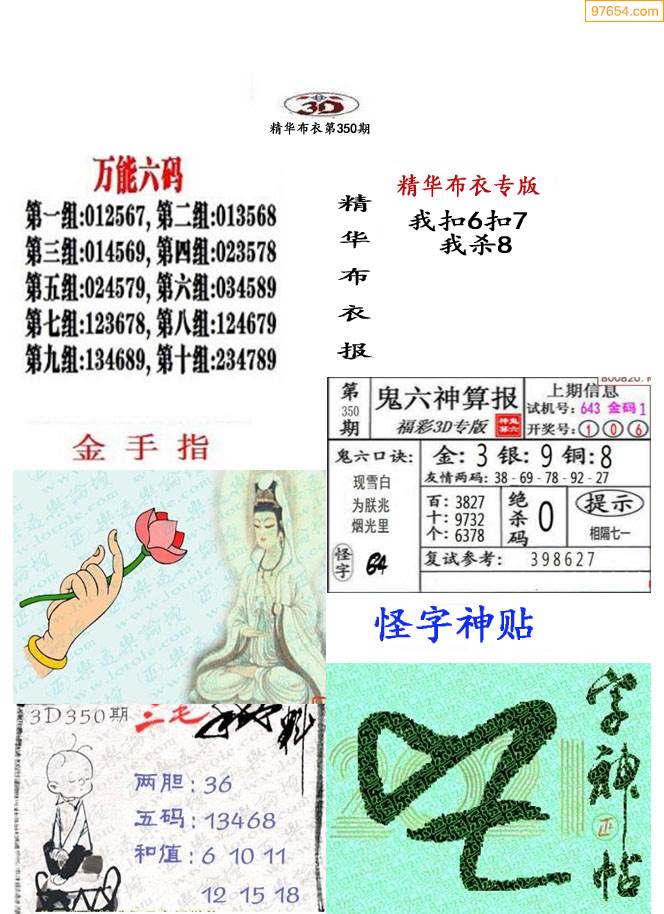 97654.com
3D
精华布衣第350期
万能六码
第一组:012567, 第二组:013568
第三组:014569, 第四组:023578
第五组:024579, 第六组:034589
第七组:123678, 第八组:124679
第九组:134689, 第十组:234789
精华布衣报
精华布衣专版
我扣6扣7
我杀8
金手指
第350期
鬼六神算报
福彩3D专版
上期信息
试机号: 643 金码 1
开奖号: 1 0 6
鬼六口诀:
现雪白
为朕兆
烟光里
怪字
64
金: 3 银: 9 铜: 8
友情两码: 38 - 69 - 78 - 92 - 27
百: 3827
十: 9732
个: 6378
绝杀码 0
提示
相隔七一
复试参考: 398627
怪字神贴
3D350期
三毛
两胆: 36
五码: 13468
和值: 6 10 11
12 15 18
字神帖
2021